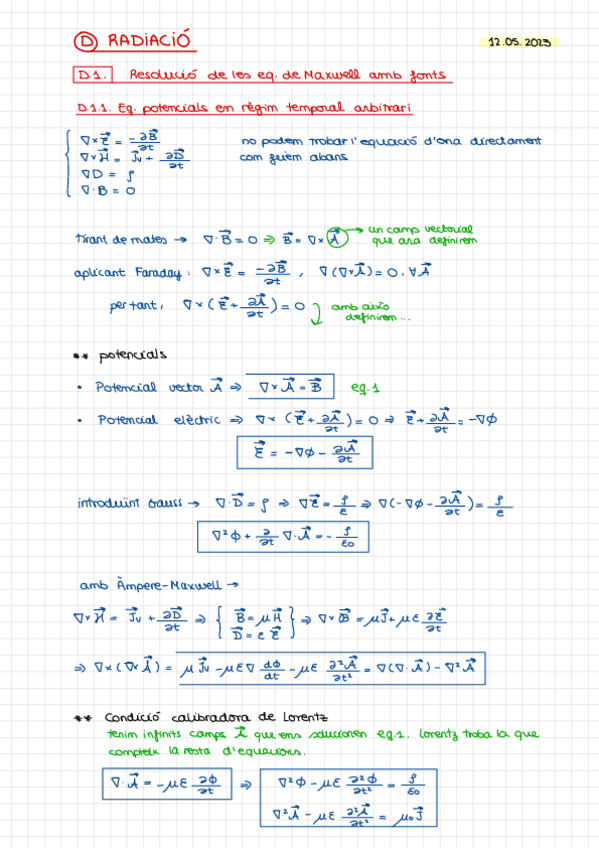 D RADIACIÓ 12.05.2023
D.1. Resolució de les eq. de Maxwell amb fonts
D.1.1. Eq. potencials en règim temporal arbitrari
∇×E⃗ = -∂B⃗/∂t no podem trobar l'equació d'ona directament
∇×H⃗ = J⃗v + ∂D⃗/∂t com feiem abans
∇D = ρ
∇·B = 0
tirant de mates → ∇·B⃗ = 0 ⇒ B⃗ = ∇×A⃗ → un camp vectorial
que ara definirem
aplicant Faraday: ∇×E⃗ = -∂B⃗/∂t , ∇(∇×A⃗) = 0, ∀A⃗
per tant, ∇×(E⃗ + ∂A⃗/∂t) = 0 amb això
definirem...
** potencials
• Potencial vector A⃗ ⇒ ∇×A⃗ = B⃗ eq.1
• Potencial elèctric ⇒ ∇×(E⃗ + ∂A⃗/∂t) = 0 ⇒ E⃗ + ∂A⃗/∂t = -∇ϕ
E⃗ = -∇ϕ - ∂A⃗/∂t
introduïnt Gauss → ∇·D⃗ = ρ ⇒ ∇E⃗ = ρ/ε ⇒ ∇(-∇ϕ - ∂A⃗/∂t) = ρ/ε
∇²ϕ + ∂/∂t ∇·A⃗ = - ρ/ε0
amb Àmpere-Maxwell →
∇×H⃗ = J⃗v + ∂D⃗/∂t ⇒ { B⃗ = μH⃗ D⃗ = εE⃗ } ⇒ ∇×B⃗ = μJ⃗ + με ∂E⃗/∂t
⇒ ∇×(∇×A⃗) = μJ⃗v - με∇ dϕ/dt - με ∂²A⃗/∂t² = ∇(∇·A⃗) - ∇²A⃗
** Condició calibradora de Lorentz
tenim infinits camps A⃗ que ens solucionen eq.1. Lorentz troba la que
compleix la resta d'equacions.
∇·A⃗ = -με ∂ϕ/∂t ⇒ ∇²ϕ - με ∂²ϕ/∂t² = ρ/ε0
∇²A⃗ - με ∂²A⃗/∂t² = μ0J⃗